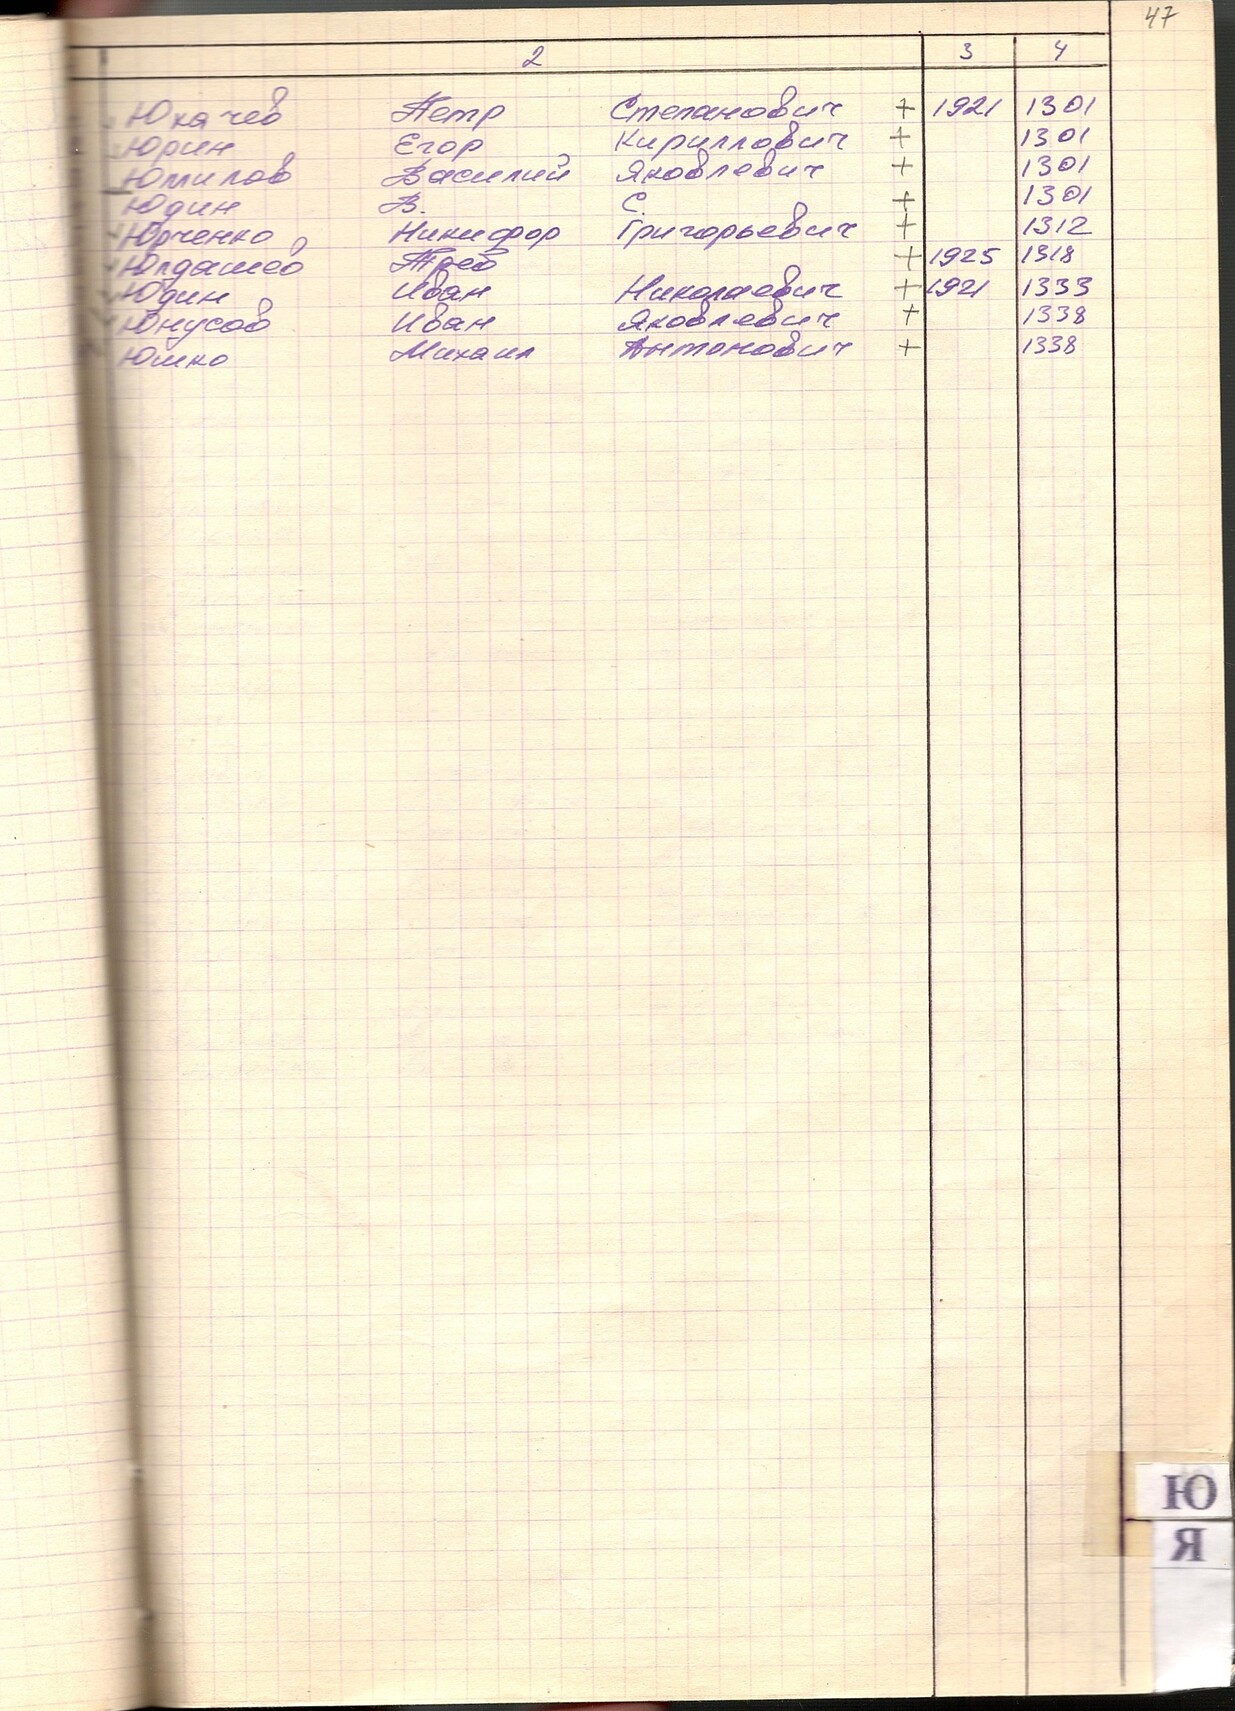 47
2 3 4
Юкачев Петр Степанович + 1921 1301
Юрин Егор Кириллович + 1301
Юмилов Василий Яковлевич + 1301
Юдин В. С. + 1301
Юрченко Никифор Григорьевич + 1312
Юлдашев + 1925 1318
Юдин Иван Николаевич + 1921 1333
Юнусов Иван Яковлевич + 1338
Юшко Михаил Антонович + 1338
Ю
Я